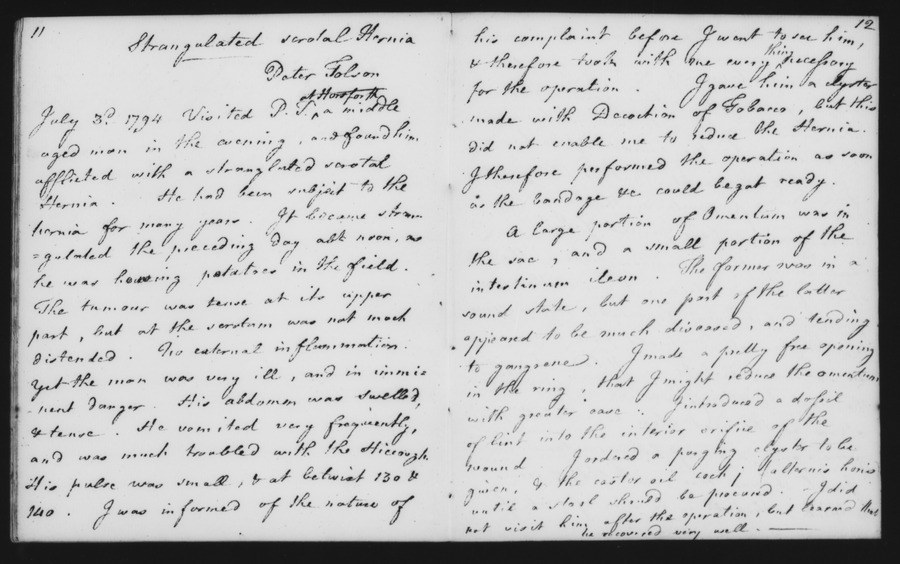 11
Strangulated scrotal Hernia
Peter Folson
at Horsforth
July 3d. 1794 Visited P. F. a middle
aged man in the evening, and found him
afflicted with a strangulated scrotal
Hernia. He had been subject to the
hernia for many years. It became stran
=gulated the preceding day abt noon, as
he was howeing potatoes in the field.
The tumour was tense at its upper
part, but at the scrotum was not much
distended. No external inflammation.
Yet the man was very ill, and in immi=
-nent danger. His abdomen was swelled,
& tense. He vomited very frequently,
and was much troubled with the Hicough.
His pulse was small, & at betwixt 130 &
140. I was informed of the nature of
12
his complaint before I went to see him,
& therefore took with me every thing necessary
for the operation. I gave him a clyster
made with Decoction of Tobacco, but this
did not enable me to reduce the Hernia.
I therefore performed the operation as soon
as the bandage &c could be got ready.
A large portion of Omentum was in
the sac, and a small portion of the
intestinum ileon. The former was in a
sound state, but one part of the latter
appeared to be much diseased, and tending
to gangrene. I made a pretty free opening
in the ring, that I might reduce the omentum
with greater ease. I introduced a dossil
of lint into the interior orifice of the
wound. I ordered a purging clyster to be
given, & the castor oil each alternis horis
until a stool should be procured. I did
not visit him after the operation, but learned that
he recovered very well.